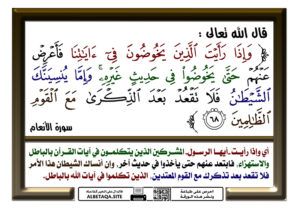 قال الله تعالى :
﴿ وَإِذَا رَأَيْتَ الَّذِينَ يَخُوضُونَ فِي ءَايَٰتِنَا فَأَعْرِضْ
عَنْهُمْ حَتَّىٰ يَخُوضُوا۟ فِي حَدِيثٍ غَيْرِهِۦ ۚ وَإِمَّا يُنسِيَنَّكَ
الشَّيْطَٰنُ فَلَا تَقْعُدْ بَعْدَ الذِّكْرَىٰ مَعَ الْقَوْمِ
الظَّٰلِمِينَ ٦٨ ﴾
سورة الأنعام
أي وإذا رأيت ـأيها الرسولـ المشركين الذين يتكلمون في آيات القرآن بالباطل
والاستهزاء، فابتعد عنهم حتى يأخذوا في حديث آخر، وإن أنساك الشيطان هذا الأمر
فلا تقعد بعد تذكرك مع القوم المعتدين، الذين تكلموا في آيات الله بالباطل.
احرص على طباعة
ونشر هذه الورقة
ALBETAQA.SITE